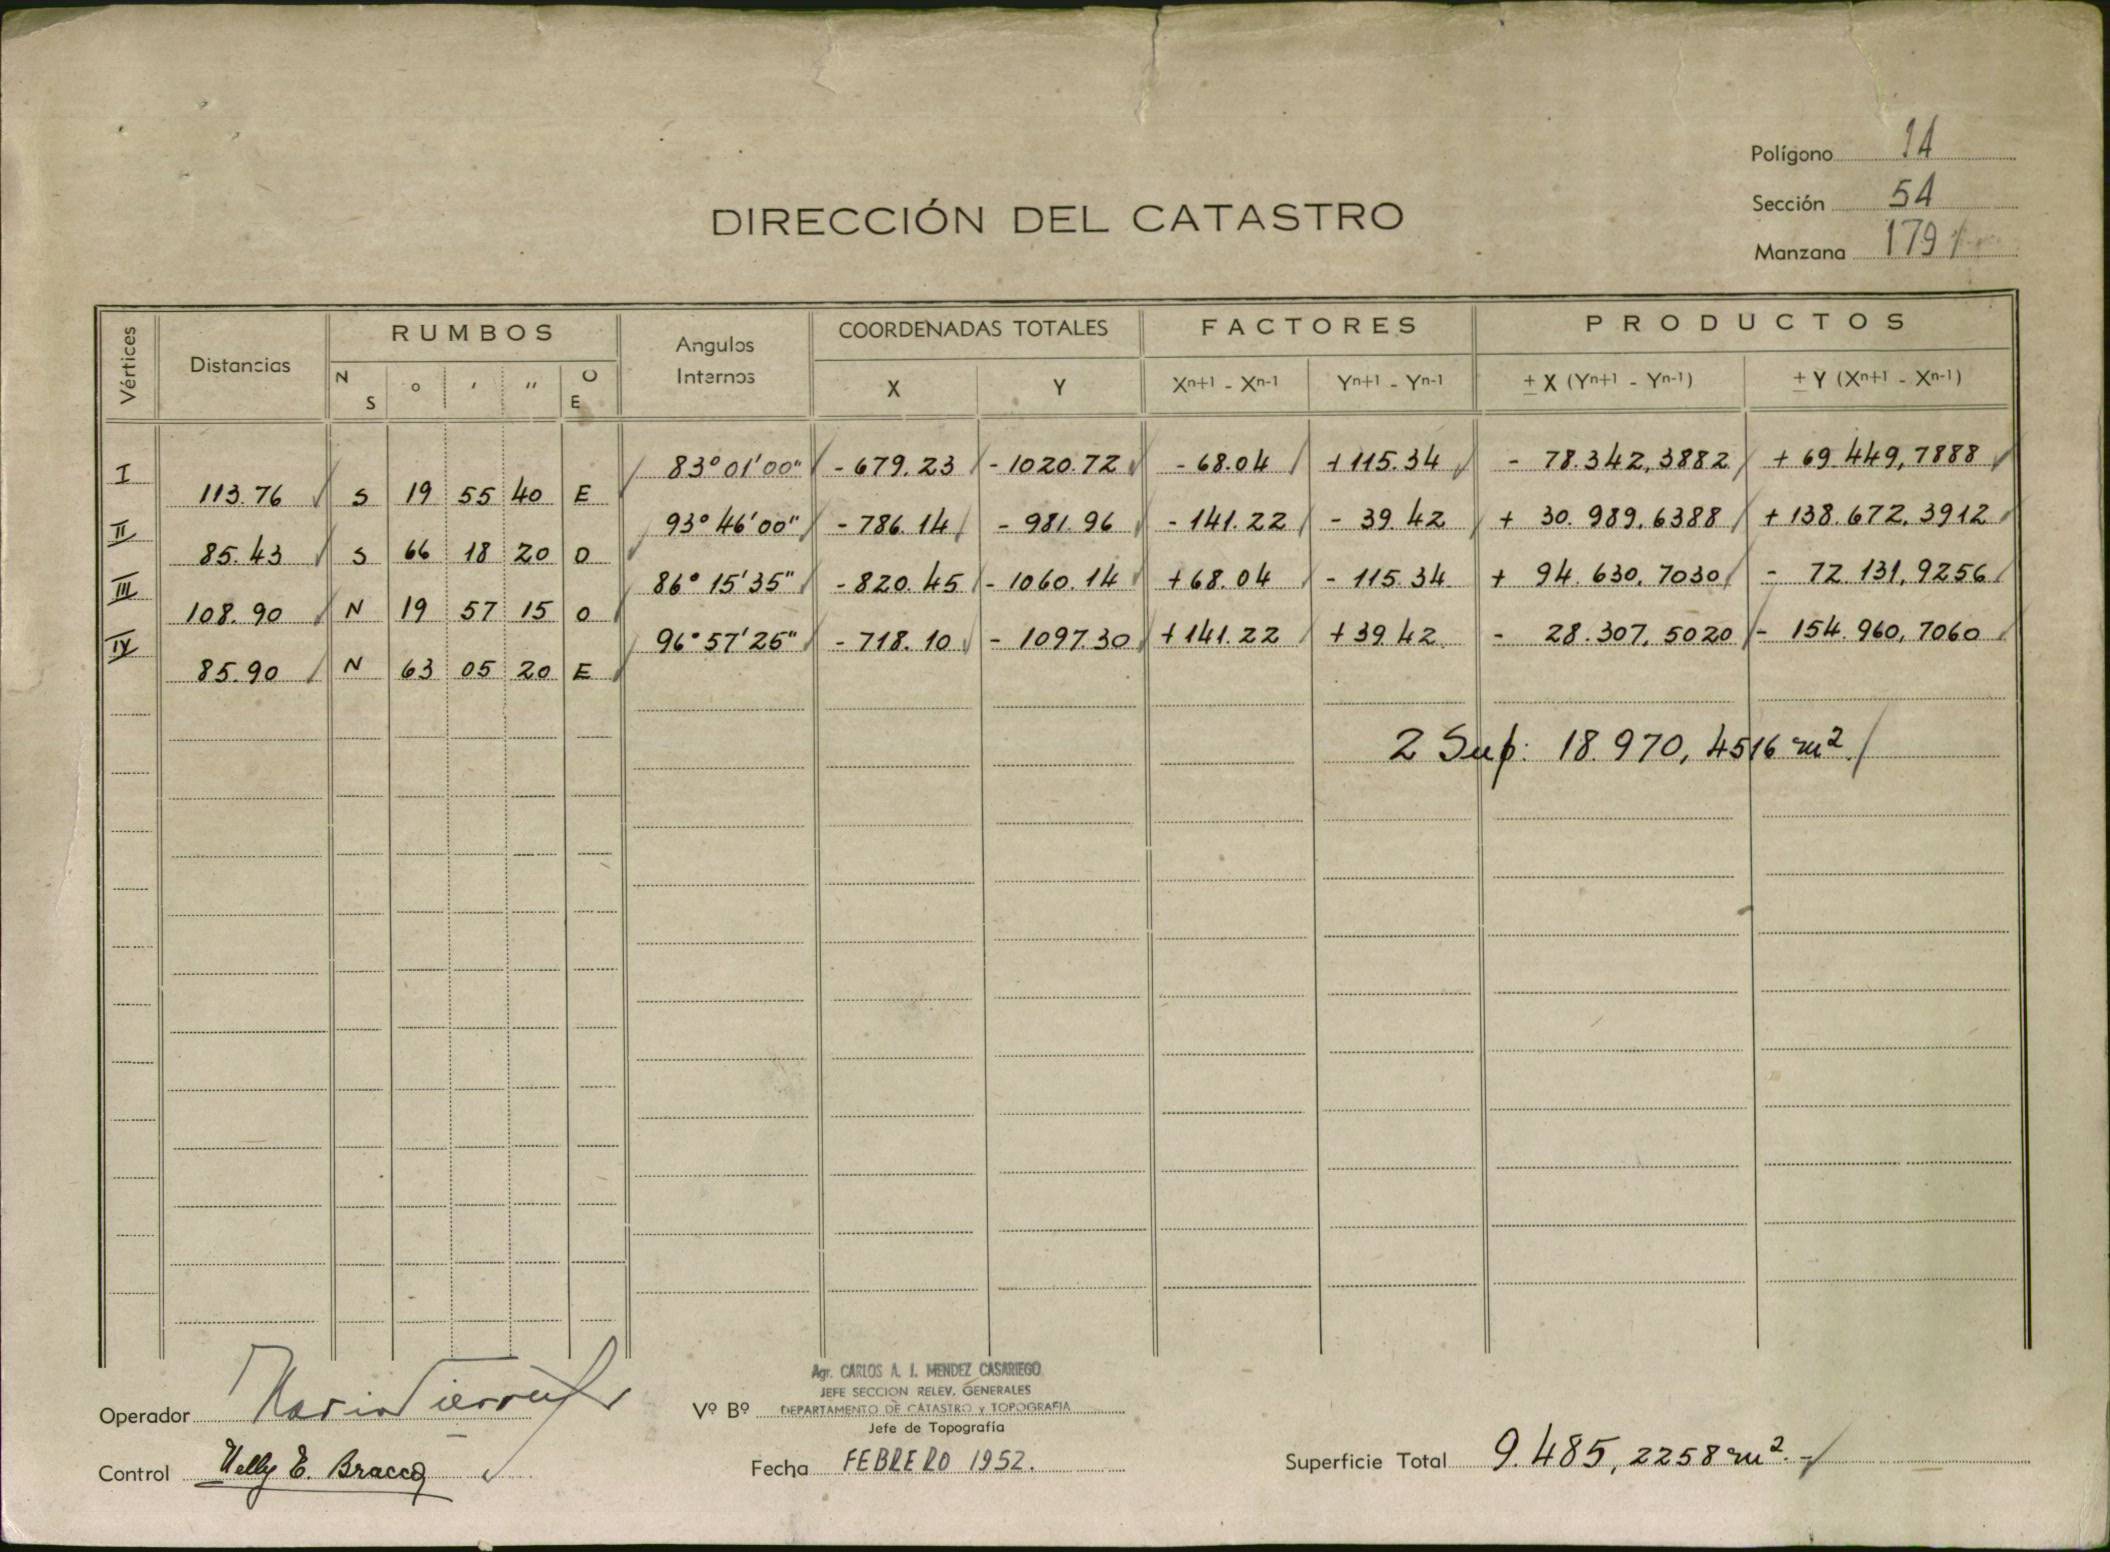 Polígono 14
Sección 54
Manzana 179
DIRECCIÓN DEL CATASTRO
Vértices Distancias RUMBOS Angulos Internos COORDENADAS TOTALES FACTORES PRODUCTOS
N S ° ' " O E X Y Xⁿ⁺¹ - Xⁿ⁻¹ Yⁿ⁺¹ - Yⁿ⁻¹ ± X (Yⁿ⁺¹ - Yⁿ⁻¹) ± Y (Xⁿ⁺¹ - Xⁿ⁻¹)
I 83° 01' 00" - 679.23 - 1020.72 - 68.04 + 115.34 - 78.342,3882 + 69.449,7888
113.76 S 19 55 40 E
II 93° 46' 00" - 786.14 - 981.96 - 141.22 - 39.42 + 30.989,6388 + 138.672,3912
85.43 S 66 18 20 O
III 86° 15' 35" - 820.45 - 1060.14 + 68.04 - 115.34 + 94.630,7030 - 72.131,9256
108.90 N 19 57 15 O
IV 96° 57' 25" - 718.10 - 1097.30 + 141.22 + 39.42 - 28.307,5020 - 154.960,7060
85.90 N 63 05 20 E
2 Sup: 18.970,4516 m²
Agr. CARLOS A. J. MENDEZ CASARIEGO
JEFE SECCION RELEV. GENERALES
Operador Vº Bº DEPARTAMENTO DE CATASTRO y TOPOGRAFIA
Jefe de Topografía
Control Nelly E. Bracco Fecha FEBRERO 1952. Superficie Total 9.485,2258 m².